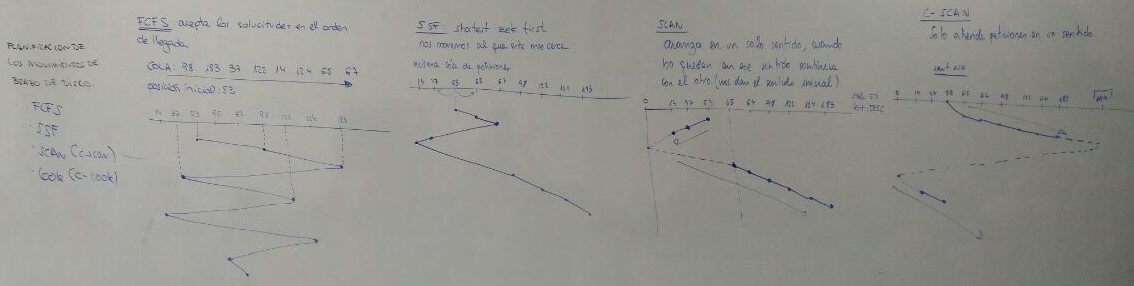 PLANIFICACION DE
LOS MOVIMIENTOS DE
BRAZO DE DISCO.
FCFS
· SSF
· SCAN (C-SCAN)
· look (C-look)
FCFS: acepta las solicitudes en el orden
de llegada
COLA: 98 183 37 122 14 124 65 67
posición inicial: 53
14 37 53 65 67 98 122 124 183
SSF: shortest seek first
nos movemos al que esté mas cerca
misma cola de peticiones
14 37 53 65 67 98 122 124 183
SCAN
avanza en un solo sentido, cuando
no quedan en ese sentido continua
con el otro (nos dan el sentido inicial)
0 14 37 53 65 67 98 122 124 183
C-SCAN
Solo atiende peticiones en un sentido.
0 14 37 53 65 67 98 122 124 183